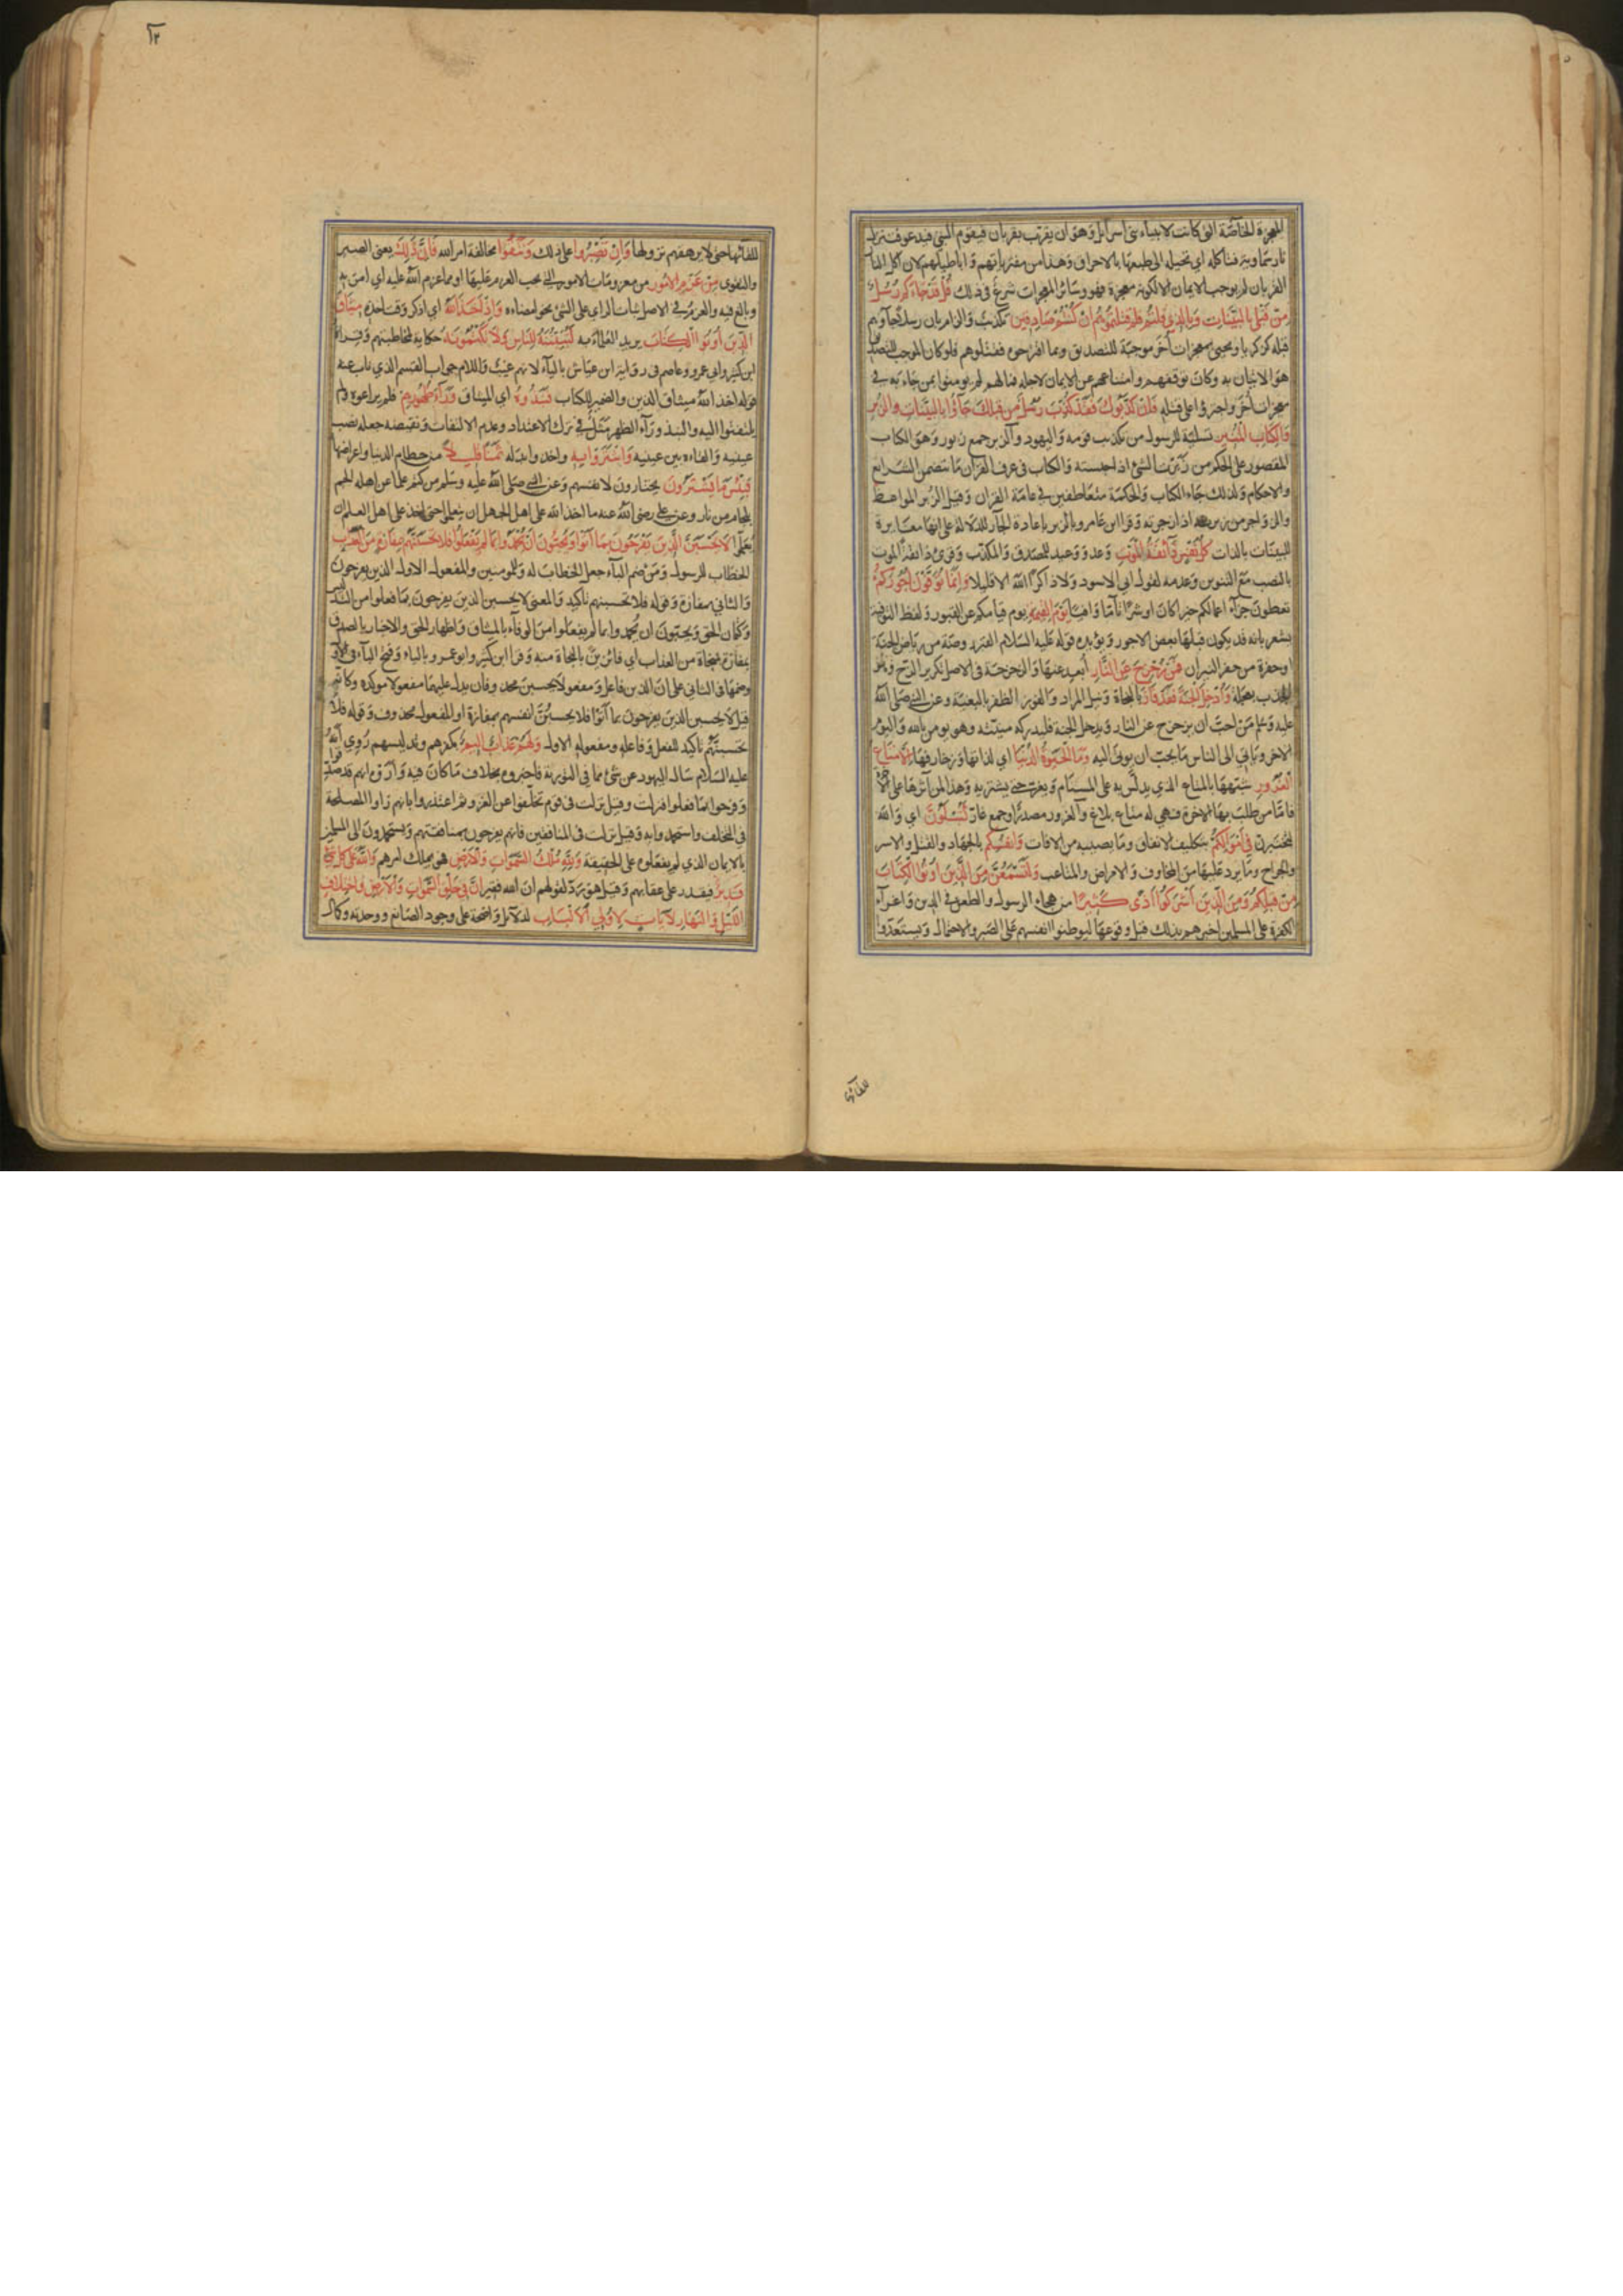 المعجزة الخاصّة التى كانت لانبياء بنى اسرآئل وهو ان يقرّب بقربان فيقوم النبىّ فيدعو فتنزل
نار سماوية فتاكله اى تحيله الى طبعها بالاحراق وهذا من مفترياتهم واباطيلهم لان اكل النار
القربان لم يوجب الايمان الا لكونه معجزة فهو وسائر المعجزات شرع فى ذلك قُلْ قَدْ جَاءَكُم رُسُلٌ
مِنْ قَبْلِى بِالبَيِّنَاتِ وَبِالَّذِى قُلْتُم فَلِمَ قَتَلْتُمُوهُمْ اِنْ كُنْتُمْ صَادِقِينَ تكذيب والزام بان رسلا جآوهم
قبله كزكريا ويحيى بمعجزات أخر موجبة للتصديق وبما اقترحوه فقتلوهم فلو كان الموجب للتصديق
هو الاتيان به وكان توقفهم وامتناعهم عن الايمان لاجله فما لهم لم يومنوا بمن جاء به فى
معجزات أخر واجترؤا على قتله فَاِنْ كَذَّبُوكَ فَقَدْ كُذِّبَ رُسُلٌ مِن قَبْلِكَ جَآؤُا بِالبَيِّنَاتِ وَالزُّبُرِ
وَالكِتَابِ المُنِيرِ تسلية للرسول من تكذيب قومه واليهود والزبر جمع زبور وهو الكتاب
المقصور على الحكم من زَبَرْتُ الشئ اذا حبسته والكتاب فى عرف القران ما يتضمن الشرائع
والاحكام ولذلك جاء الكتاب والحكمة متعاطفين فى عامة القران وقيل الزُبر المواعظ
والزواجر من زبرته اذا زجرته وقرا ابن عامر وبالزبر باعادة الجارّ للدلالة على انها مغايرة
للبينات بالذات كُلُّ نَفْسٍ ذَآئِقَةُ المَوْتِ وعد ووعيد للمصدق والمكذب وقرئ ذائقةٌ الموت
بالنصب مع التنوين وعدمه لقول ابى الاسود ولا ذاكراً الله الا قليلا وَاِنَّمَا تُوَفَّوْنَ اُجُورَكُمْ
تعطون جزآء اعمالكم خيرا كان او شرًّا تآمّا وافيا يَوْمَ القِيٰمَةِ يوم قيامكم عن القبور ولفظ التوفية
يشعر بانه قد يكون قبلها بعض الاجور ويؤيده قوله عليه السلام القبر روضة من رياض الجنة
او حفرة من حفر النيران فَمَنْ زُحْزِحَ عَنِ النَّارِ أبعد عنها والزحزحة فى الاصل تكرير الزح وهو
الجذب بعجلة وَاُدْخِلَ الجَنَّةَ فَقَدْ فَازَ بالنجاة ونيل المراد والفوز الظفر بالبغية وعن النبى صلى الله
عليه وسلم من احبّ ان يزحزح عن النار ويدخل الجنة فليدركه منيته وهو يومن بالله واليوم
الاخر وياتى الى الناس ما يحبّ ان يوتى اليه وَمَا الحَيٰوةُ الدُّنْيَا اى لذاتها وزخارفها اِلَّا مَتَاعُ
الغُرُورِ شبهها بالمتاع الذى يدلّس به على المستام ويغرّ حتى يشتريه وهذا لمن آثرها على الاخرة
فاما من طلب بها الاخرة فهى له متاع بلاغ والغرور مصدر او جمع غارّ لَتُبْلَوُنَّ اى والله
لتختبرن فِى اَمْوَالِكُمْ بتكليف الانفاق وما يصيبه من الافات وَاَنْفُسِكُمْ بالجهاد والقتل والاسر
والجراح وما يرد عليها من المخاوف والامراض والمتاعب وَلَتَسْمَعُنَّ مِنَ الَّذِينَ اُوتُوا الكِتَابَ
مِنْ قَبْلِكُمْ وَمِنَ الَّذِينَ اَشْرَكُوا اَذًى كَثِيرًا من هجاء الرسول والطعن فى الدين واغرآء
الكفرة على المسلمين اخبرهم بذلك قبل وقوعها ليوطنوا انفسهم على الصبر والاحتمال ويستعدّوا
للقآئها
للقآئها حتى لا يرهقهم نزولها وَاِنْ تَصْبِرُوا على ذلك وَتَتَّقُوا مخالفة امر الله فَاِنَّ ذٰلِكَ يعنى الصبر
والتقوى مِنْ عَزْمِ الاُمُورِ من معزومات الامور التى يجب العزم عليها او مما عزم الله عليه اى امر به
وبالغ فيه والعزم فى الاصل ثبات الراى على الشئ نحو امضاءه وَاِذْ اَخَذَ اللهُ اى اذكر وقت اخذه مِيثَاقَ
الَّذِينَ اُوتُوا الكِتَابَ يريد العلمآء به لَتُبَيِّنُنَّهُ لِلنَّاسِ وَلَا تَكْتُمُونَهُ حكاية لمخاطبتهم وقراه
ابن كثير وابى عمرو وعاصم فى رواية ابن عياش باليآء لانهم غيب واللام جواب القسم الذى ناب عنه
قوله اخذ الله ميثاق الذين والضمير للكتاب فَنَبَذُوهُ اى الميثاق وَرَآءَ ظُهُورِهِمْ فلم يراعوه ولم
يلتفتوا اليه والنبذ ورآء الظهر مثل فى ترك الاعتداد وعدم الالتفات ونقيضه جعله نصب
عينيه والقاءه بين عينيه وَاشْتَرَوْا بِهِ واخذوا بدله ثَمَنًا قَلِيلًا من حطام الدنيا واعراضها
فَبِئْسَ مَا يَشْتَرُونَ يختارون لانفسهم وعن النبى صلى الله عليه وسلم من كتم علما عن اهله الجم
بلجام من نار وعن على رضى الله عنه ما اخذ الله على اهل الجهل ان يتعلموا حتى اخذ على اهل العلم ان
يعلّموا لَا تَحْسَبَنَّ الَّذِينَ يَفْرَحُونَ بِمَا اَتَوْا وَيُحِبُّونَ اَنْ يُحْمَدُوا بِمَا لَمْ يَفْعَلُوا فَلَا تَحْسَبَنَّهُمْ بِمَفَازَةٍ مِنَ العَذَابِ
الخطاب للرسول ومن ضم البآء جعل الخطاب له وللمومنين والمفعول الاول الذين يفرحون
والثانى بمفازة وقوله فلا تحسبنهم تاكيد والمعنى لا تحسبن الذين يفرحون بما فعلوا من التدليس
وكتمان الحق ويحبون ان يحمدوا بما لم يفعلوا من الوفآء بالميثاق واظهار الحق والاخبار بالصدق
بمفازة بمنجاة من العذاب اى فائزين بالنجاة منه وقرا ابن كثير وابو عمرو بالياء وفتح البآء فى الاول
وضمها فى الثانى على ان الذين فاعل ومفعولا يحسبن محذوفان يدل عليهما مفعولا موكده وكانه
قيل لا يحسبن الذين يفرحون بما اتوا فلا يحسبُنّ انفسهم بمفازة او المفعول محذوف وقوله فلا
تحسبنهم تاكيد للفعل وفاعله ومفعوله الاول وَلَهُمْ عَذَابٌ اَلِيمٌ بكفرهم وتدليسهم رُوى انّه
عليه السلام سال اليهود عن شئ مما فى التورية فاخبروه بخلاف ما كان فيه واروه انهم قد صدقوا
وفرحوا بما فعلوا فنزلت وقيل نزلت فى قوم تخلّفوا عن الغزو ثم اعتذروا بانهم راوا المصلحة
فى التخلف واستحمدوا به وقيل نزلت فى المنافقين فانهم يفرحون بمنافقتهم ويستحمدون الى المسلمين
بالايمان الذى لم يفعلوه على الحقيقة وَلِلّٰهِ مُلْكُ السَّمٰوَاتِ وَالاَرْضِ فهو يملك امرهم وَاللهُ عَلَى كُلِّ شَىْءٍ
قَدِيرٌ فيقدر على عقابهم وقيل هو ردّ لقولهم ان الله فقير اِنَّ فِى خَلْقِ السَّمٰوَاتِ وَالاَرْضِ وَاخْتِلَافِ
اللَّيْلِ وَالنَّهَارِ لَآيَاتٍ لِاُولِى الاَلْبَابِ لدلآئل واضحة على وجود الصانع ووحدته وكمال